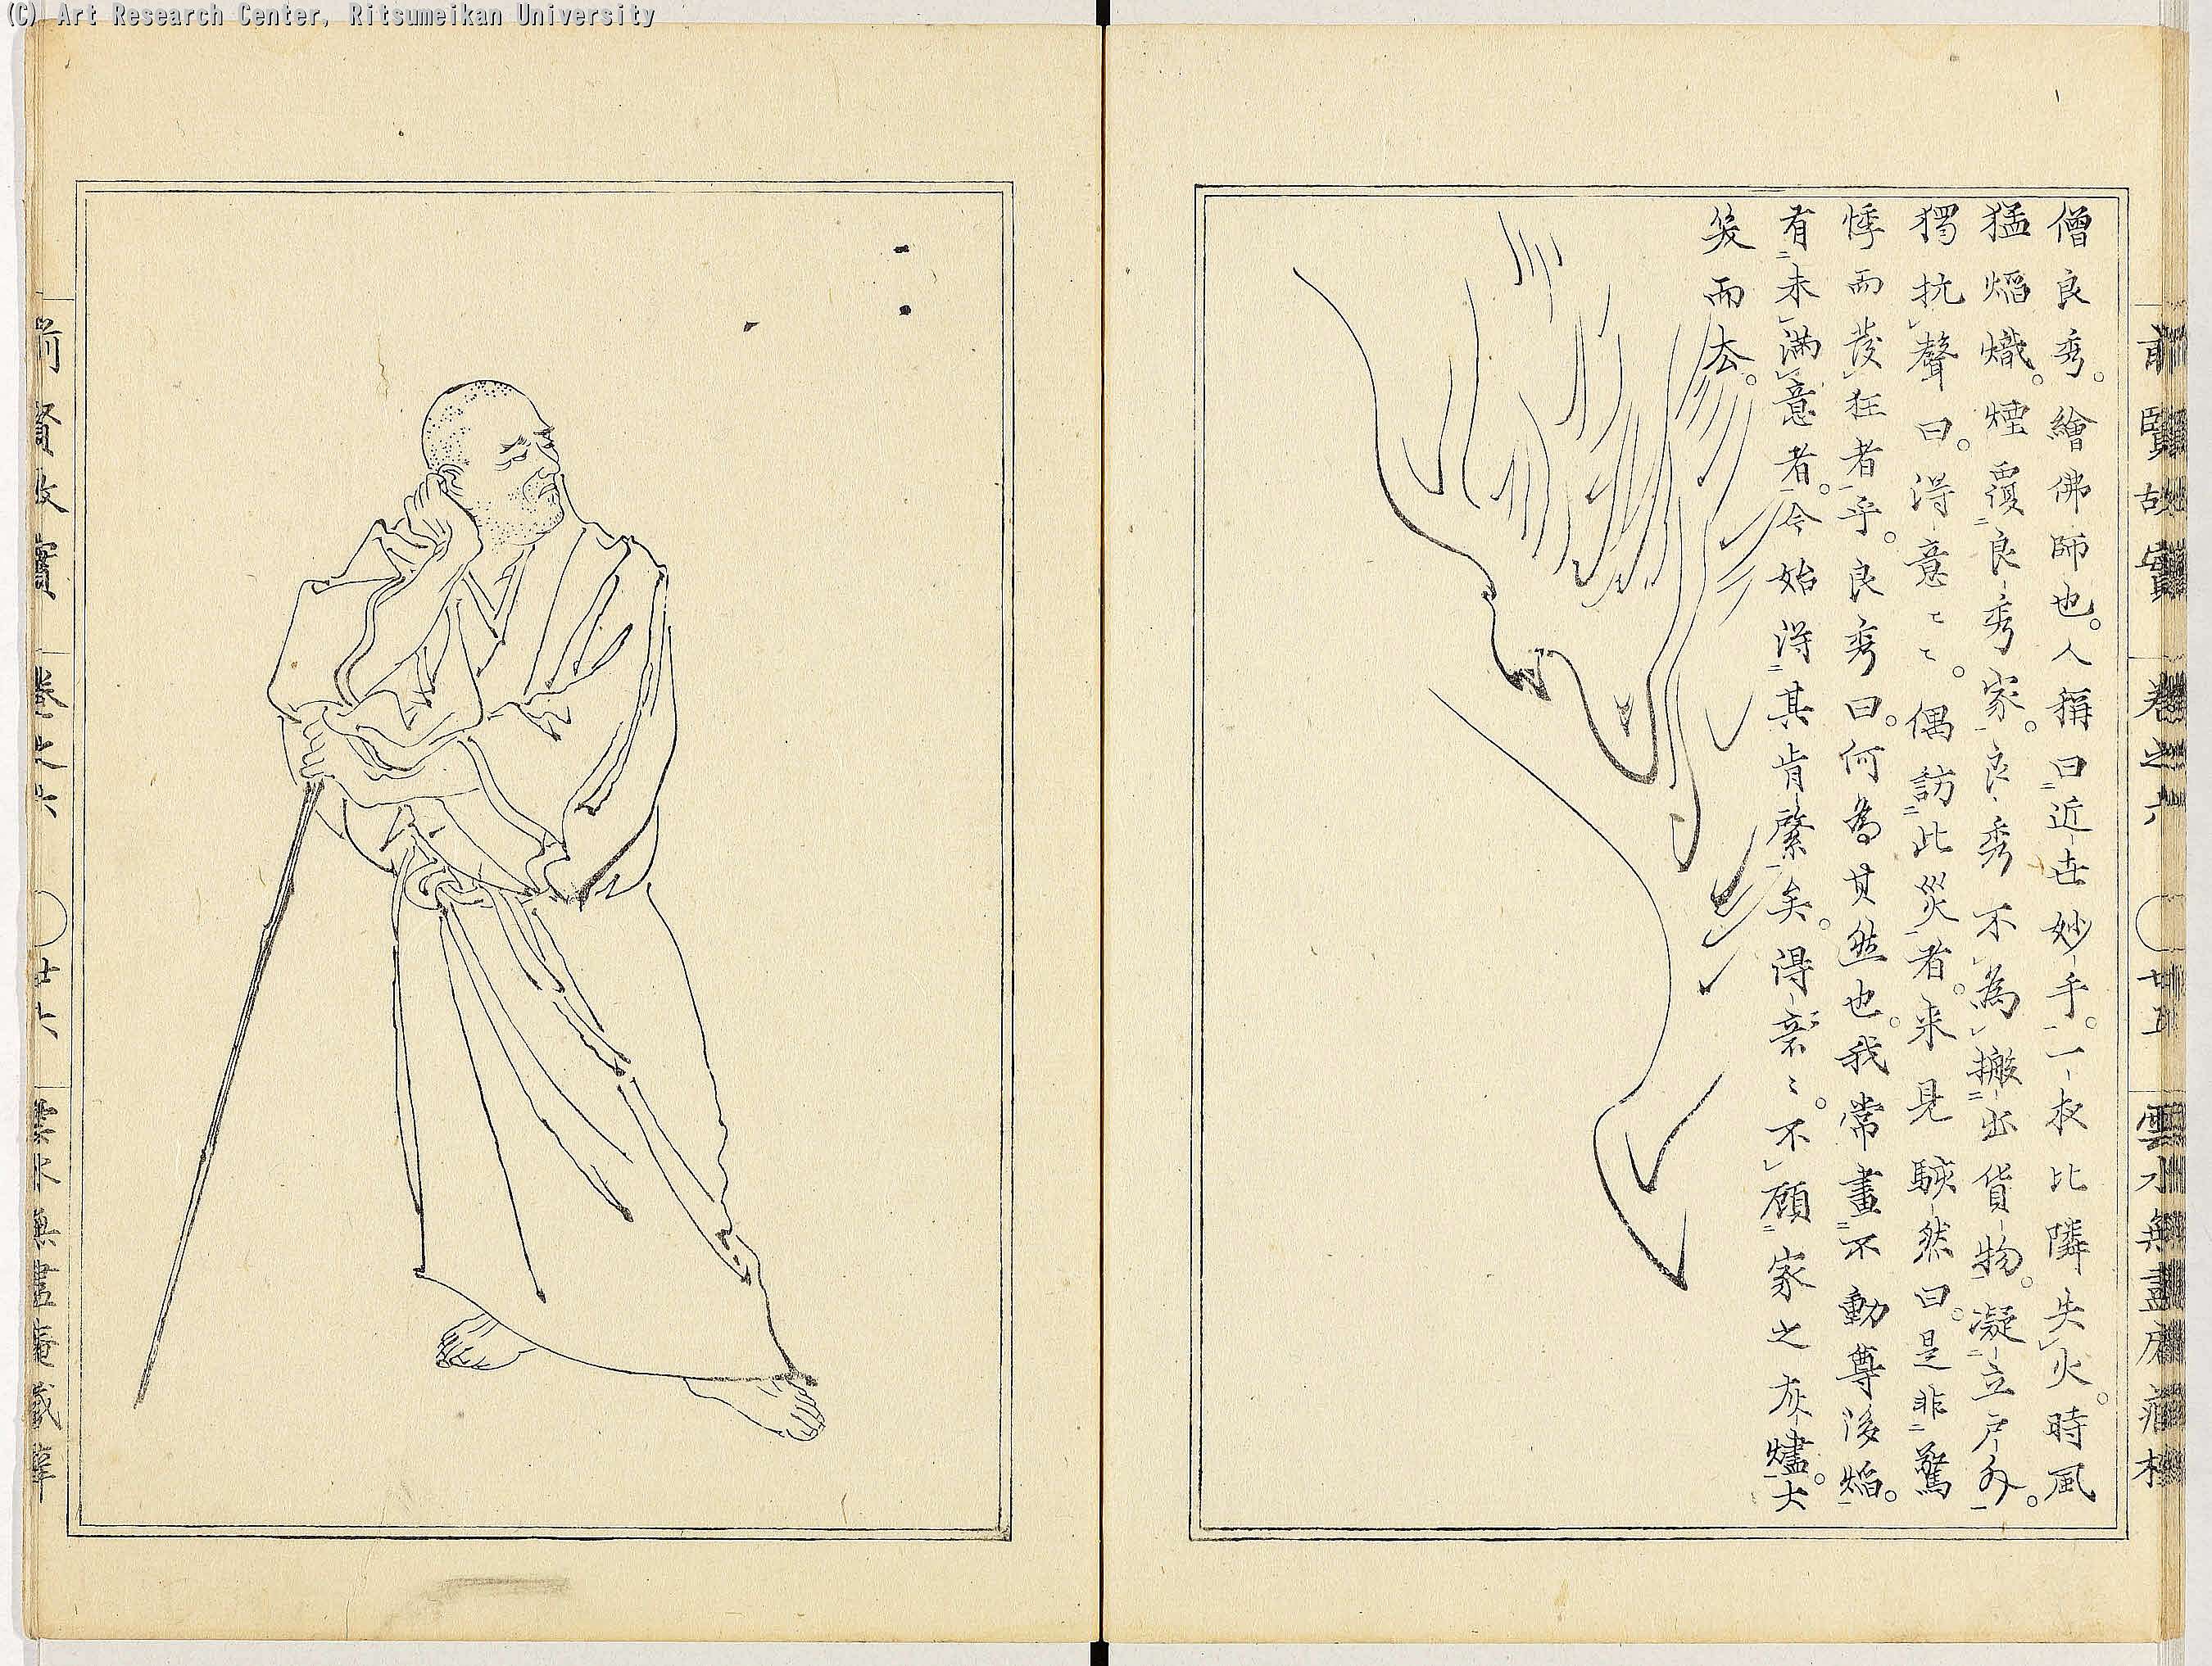 (C) Art Research Center, Ritsumeikan University
前賢故實 卷之六 ○廿五 雲水無盡庵藏梓
僧良秀。繪佛師也。人稱曰近世妙手。一夜比隣失火。時風
猛焰熾。煙覆良秀家。良秀不為搬出貨物。凝立戶外。
獨抗聲曰。得意〻〻。偶訪此災者。来見駭然曰。是非驚
悸而發狂者乎。良秀曰。何為其然也。我常畫不動尊後焰。
有未滿意者。今始得其肯綮矣。得意〻。不顧家之灰燼。大
笑而去。
前賢故實 卷之六 ○廿六 雲水無盡庵藏梓